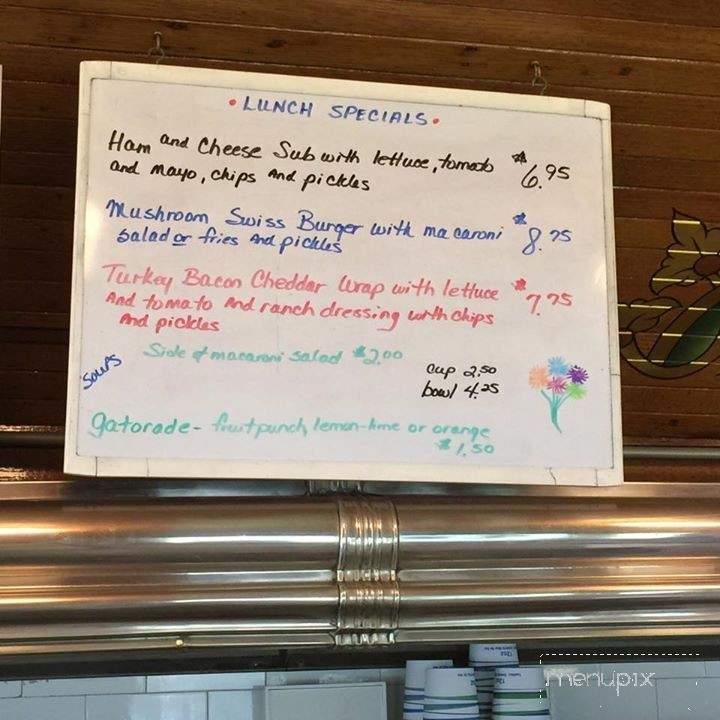 • LUNCH SPECIALS •
Ham and Cheese Sub with lettuce, tomato $6.95
and mayo, chips and pickles
Mushroom Swiss Burger with macaroni $8.75
salad or fries And pickles
Turkey Bacon Cheddar Wrap with lettuce $7.75
And tomato And ranch dressing with chips
And pickles
Side of macaroni salad $2.00
Soups
cup 2.50
bowl 4.25
gatorade - fruit punch, lemon-lime or orange
$1.50
menupix